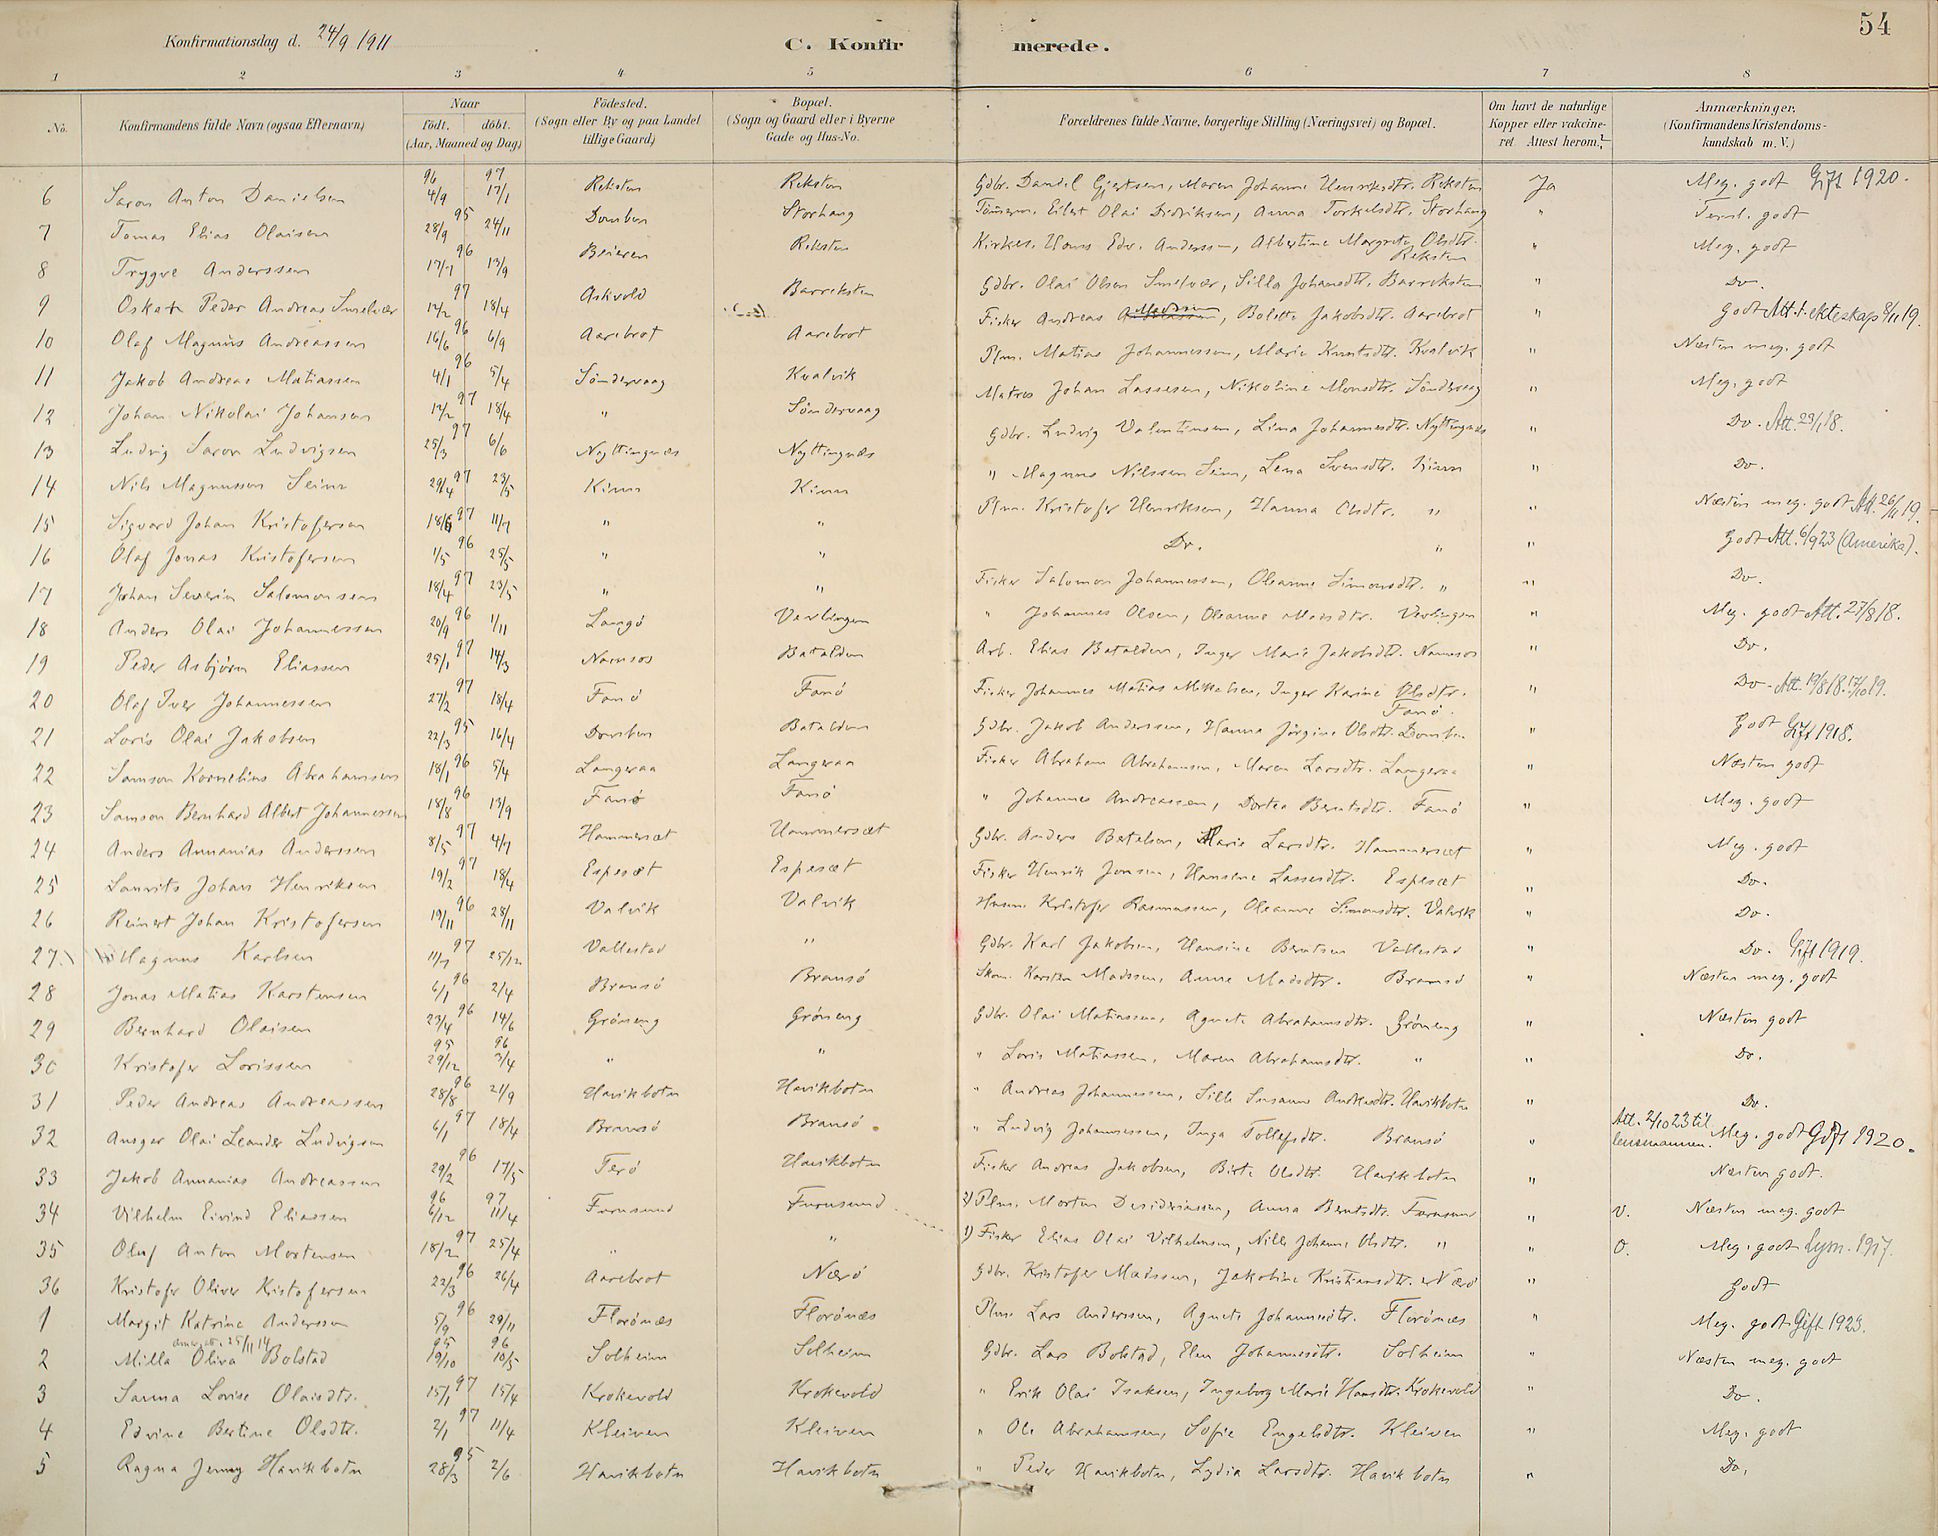 54
Konfirmationsdag d. 24/9 1911
C. Konfirmerede.
1 2 3 4 5 6 7 8
No. Konfirmandens fulde Navn (ogsaa Efternavn) Naar födt. döbt. (Aar, Maaned og Dag) Födested. (Sogn eller By og paa Landet tillige Gaard) Bopæl. (Sogn og Gaard eller i Byerne Gade og Hus-No. Forældrenes fulde Navne, borgerlige Stilling (Næringsvei) og Bopæl. Om havt de naturlige Kopper eller vakcineret Attest herom? Anmærkninger, (Konfirmandens Kristendomskundskab m. V.)
6 Saron Anton Danielsen 96 4/9 97 17/1 Reksten Reksten Gdbr. Daniel Gjertsen, Maren Johanne Henriksdtr. Reksten Ja Meg. godt Gift 1920.
7 Tomas Elias Olaisen 28/9 95 24/11 Domben Storhaug Tömerm. Eilert Olai Didriksen, Anna Torkelsdtr. Storhaug " Teml. godt
8 Trygve Anderssen 17/7 96 13/9 Beieren Reksten Kirkes. Hans Edv. Anderssen, Albertine Margrete Olsdtr. Reksten " Meg. godt
9 Oskar Peder Andreas Smelvær 12/2 97 18/4 Askvold Barreksten Gdbr. Olai Olsen Smelvær, Silla Johansdtr. Barreksten " Do.
10 Olaf Magnus Andreassen 16/6 96 6/9 Aarebrot Aarebrot Fisker Andreas Madssen, Bolette Jakobsdtr. Aarebrot " Godt Att. t. ekteskap 8/11 19.
11 Jakob Andreas Matiassen 4/1 96 5/4 Söndervaag Kvalvik Plm. Matias Johannessen, Marie Knutsdtr. Kvalvik " Næsten meg. godt
12 Johan Nikolai Johansen 12/2 97 18/4 " Söndervaag Matros Johan Lassesen, Nikoline Monsdtr. Söndervaag " Meg. godt
13 Ludvig Saron Ludvigsen 25/3 97 6/6 Nyttingnæs Nyttingnæs Gdbr. Ludvig Valentinsen, Lina Johannesdtr. Nyttingnæs " Do. Att. 23/1 18.
14 Nils Magnussen Seim 29/4 97 23/5 Kinn Kinn " Magnus Nilssen Seim, Lena Svensdtr. Kinn " Do.
15 Sigvard Johan Kristofersen 18/6 97 11/7 " " Plm. Kristofer Henriksen, Hanna Olsdtr. " " Næsten meg. godt Att. 26/11 19.
16 Olaf Jonas Kristofersen 1/5 96 25/5 " " Do. " " Godt Att. 6/9 23 (Amerika).
17 Johan Severin Salomonsen 18/4 97 23/5 " " Fisker Salomon Johannessen, Oleanne Simonsdtr. " " Do.
18 Anders Olai Johannessen 20/9 96 1/11 Langö Vevlingen " Johannes Olsen, Oleanne Madsdtr. Vevlingen " Meg. godt Att. 27/8 18.
19 Peder Asbjörn Eliassen 25/1 97 14/3 Namsos Batalden Arb. Elias Batalden, Inger Marie Jakobsdtr. Namsos " Do.
20 Olaf Iver Johannessen 27/2 97 18/4 Fanö Fanö Fisker Johannes Matias Mikkelsen, Inger Karine Olsdtr. Fanö. " Do. Att. 19/8 18. 17/10 19.
21 Loris Olai Jakobsen 22/3 95 16/4 Domben Batalden Gdbr. Jakob Anderssen, Hanna Jörgine Olsdtr. Domben " Godt Gift 1918.
22 Samson Kornelius Abrahamsen 18/1 96 5/4 Langeraa Langeraa Fisker Abraham Abrahamsen, Maren Larsdtr. Langeraa " Næsten godt
23 Samson Bernhard Albert Johannessen 18/8 96 13/9 Fanö Fanö " Johannes Andreassen, Dortea Berntsdtr. Fanö " Meg. godt
24 Anders Annanias Anderssen 8/5 97 4/7 Hammersæt Hammersæt Gdbr. Anders Bertelsen, Marie Larsdtr. Hammersæt " Meg. godt
25 Laurits Johan Henriksen 19/2 97 18/4 Espesæt Espesæt Fisker Henrik Jonsen, Hansine Lassesdtr. Espesæt " Do.
26 Reinert Johan Kristofersen 19/11 96 28/11 Valvik Valvik Husm. Kristofer Rasmussen, Oleanne Simonsdtr. Valvik " Do.
27. Magnus Karlsen 11/7 97 25/12 Vallestad " Gdbr. Karl Jakobsen, Hansine Berntsen Vallestad " Do. Gift 1919.
28 Jonas Matias Karstensen 6/1 96 2/4 Bransö Bransö Skom. Karsten Madssen, Anne Madsdtr. Bransö " Næsten meg. godt
29 Bernhard Olaisen 23/4 96 14/6 Gröneng Gröneng Gdbr. Olai Matiassen, Agnete Abrahamsdtr. Gröneng " Næsten godt
30 Kristofer Lorissen 95 29/12 96 3/4 " " " Loris Matiassen, Maren Abrahamsdtr. " " Do.
31 Peder Andreas Andreassen 28/8 96 21/9 Havikbotn Havikbotn " Andreas Johannessen, Sille Susanne Andersdtr. Havikbotn " Do.
32 Ansger Olai Leander Ludvigsen 6/1 97 18/4 Bransö Bransö " Ludvig Johannessen, Inga Tollefsdtr. Bransö " Att. 2/10 23 til lensmannen. Meg. godt Gift 1920.
33 Jakob Annanias Andreassen 29/2 96 17/5 Terö Havikbotn Fisker Andreas Jakobsen, Birte Olsdtr. Havikbotn " Næsten godt.
34 Vilhelm Eivind Eliassen 96 6/12 97 11/4 Furusund Furusund 2) Plm. Morten Desideriussen, Anna Berntsdtr. Furusund " v. Næsten meg. godt
35 Oluf Anton Mortensen 18/2 97 25/4 " " 1) Fisker Elias Olai Vilhelmsen, Nille Johanne Olsdtr. " " o. Meg. godt Lysn. 1917.
36 Kristofer Oliver Kristofersen 22/3 96 26/4 Aarebrot Nærö Gdbr. Kristofer Madssen, Jakobine Kristiansdtr. Nærö " Godt
1 Margit Katrine Anderssen 5/9 96 29/11 Florönæs Florönæs Plm. Lars Anderssen, Agnete Johannesdtr. Florönæs " Meg. godt Gift 1923.
2 Milla Oliva Bolstad 95 19/10 96 10/5 Solheim Solheim Gdbr. Lars Bolstad, Elen Johannesdtr. Solheim " Næsten meg. godt
3 Sanna Lovise Olaisdtr. 15/1 97 15/4 Krokevold Krokevold " Erik Olai Isaksen, Ingeborg Marie Hansdtr. Krokevold " Do.
4 Edvine Bertine Olsdtr. 2/1 97 11/4 Kleiven Kleiven " Ole Abrahamsen, Sofie Engelsdtr. Kleiven " Meg. godt
5 Ragna Jenny Havikbotn 28/3 95 2/6 Havikbotn Havikbotn " Peder Havikbotn, Lydia Larsdtr. Havikbotn " Do.